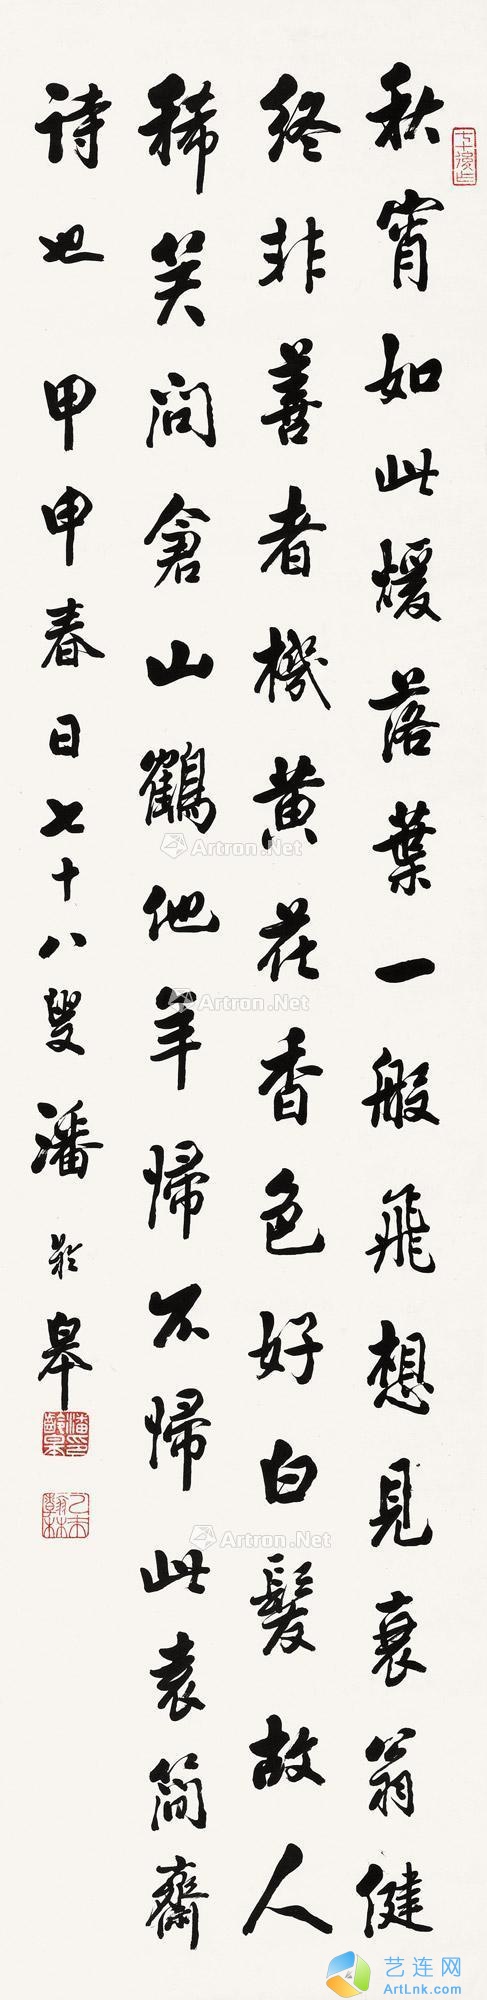 秋宵如此煖落葉一般飛想見衰翁健
終非善者機黃花香色好白髮故人
稀笑問倉山鶴他年歸不歸此袁簡齋
诗也 甲申春日七十八叟潘龄皋
潘龄皋印
乙未翰林
Artron.Net
Artron.Net
Artron.Net
艺连网
ArtLnk.com